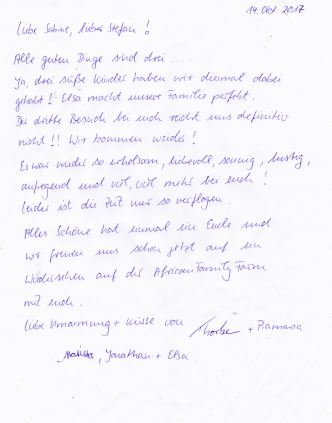 14. Okt 2017
Liebe Sabine, lieber Stefan!
Alle guten Dinge sind drei ....
Ja, drei süße Kinder haben wir diesmal dabei
gehabt! Elsa macht unsere Familie perfekt.
Der dritte Besuch bei euch reicht uns definitiv
nicht!! Wir kommen wieder!
Es war wieder so erholsam, liebevoll, sonnig, lustig,
aufregend und viel, viel mehr bei euch!
Leider ist die Zeit nur so verflogen.
Alles Schöne hat einmal ein Ende und
wir freuen uns schon jetzt auf ein
Wiedersehen auf der AfricanFamilyFarm
mit euch.
Liebe Umarmung + Küsse von + Piamaria
Jonathan + Elsa.